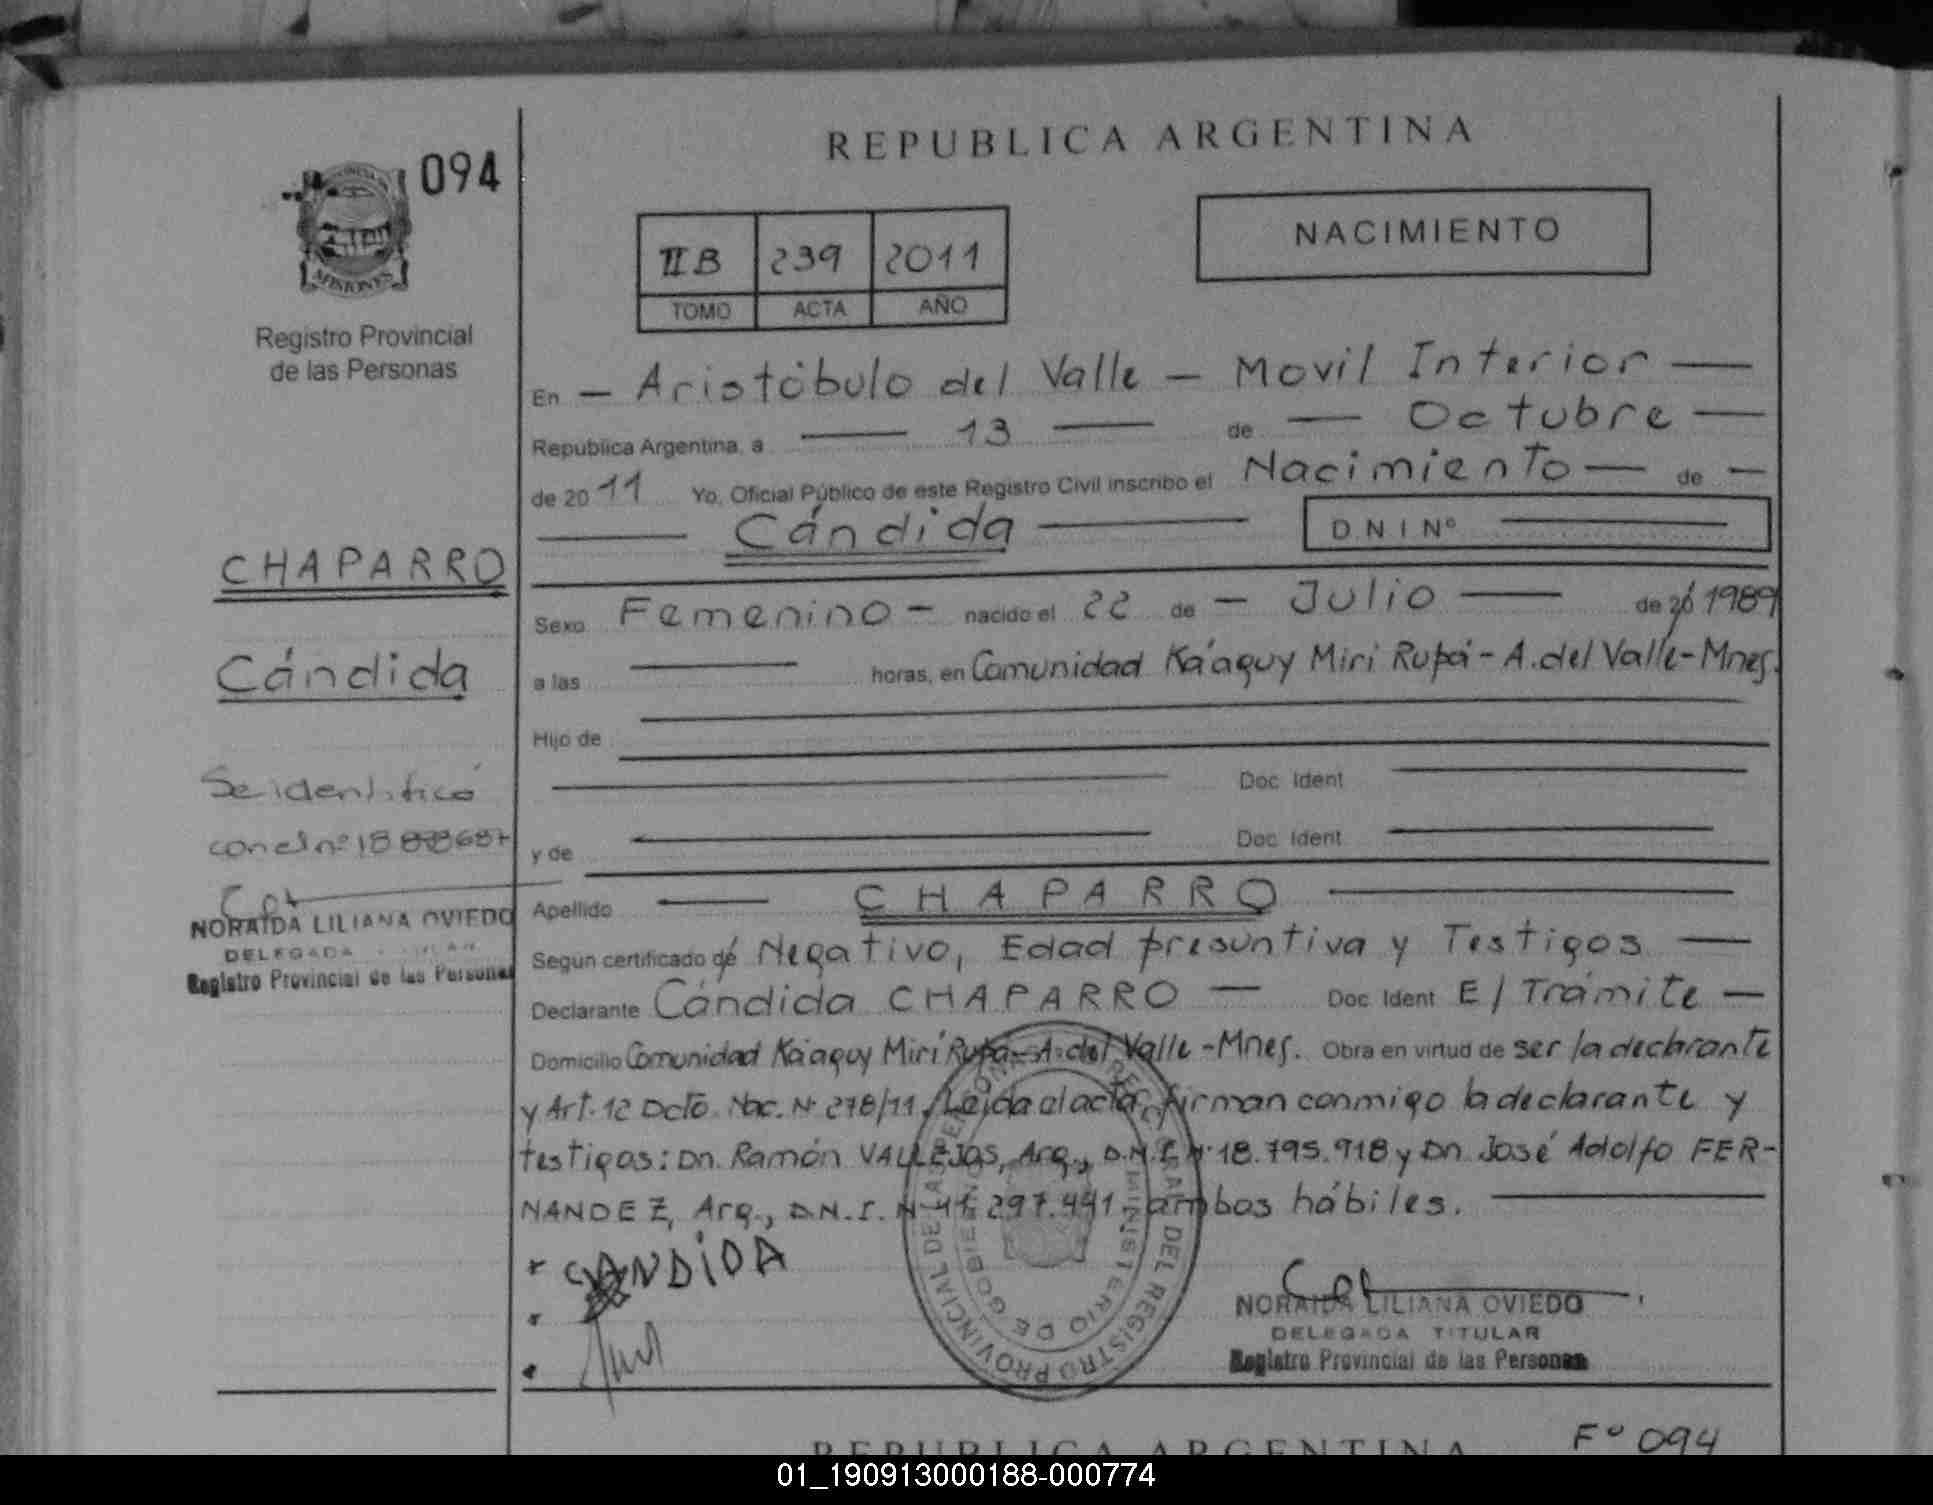 REPUBLICA ARGENTINA
094
NACIMIENTO
II B 239 2011
TOMO ACTA AÑO
MISIONES
Registro Provincial
de las Personas
En — Aristóbulo del Valle — Movil Interior —
Republica Argentina, a — 13 — de — Octubre —
de 20 11 Yo, Oficial Público de este Registro Civil inscribo el Nacimiento — de —
— Cándida — D N I Nº —
CHAPARRO
Cándida
Sexo Femenino — nacido el 22 de — Julio — de 20 1989
a las — horas, en Comunidad Ka'aguy Miri Rupá - A. del Valle - Mnes.
Hijo de —
— Doc. Ident —
y de — Doc. Ident —
Se identificó
con el nº 18
NORAIDA LILIANA OVIEDO
DELEGADA TITULAR
Registro Provincial de las Personas
Apellido — CHAPARRO —
Segun certificado de Negativo, Edad presuntiva y Testigos —
Declarante Cándida CHAPARRO — Doc. Ident E/ Trámite —
Domicilio Comunidad Ka'aguy Miri Rupá - A. del Valle - Mnes. Obra en virtud de ser la declarante
y Art. 12 Dcto. Nac. Nº 278/11. Leida el acta, firman conmigo la declarante y
testigos: Dn. Ramón VALLEJOS, Arg., D.N.I. Nº 18.795.918 y Dn. José Adolfo FER-
NANDEZ, Arg., D.N.I. Nº 11.297.441, ambos hábiles. —
CANDIDA
NORAIDA LILIANA OVIEDO
DELEGADA TITULAR
Registro Provincial de las Personas
REGISTRO PROVINCIAL DE LAS PERSONAS
MINISTERIO DE GOBIERNO
Fº 094
REPUBLICA ARGENTINA
01_190913000188-000774